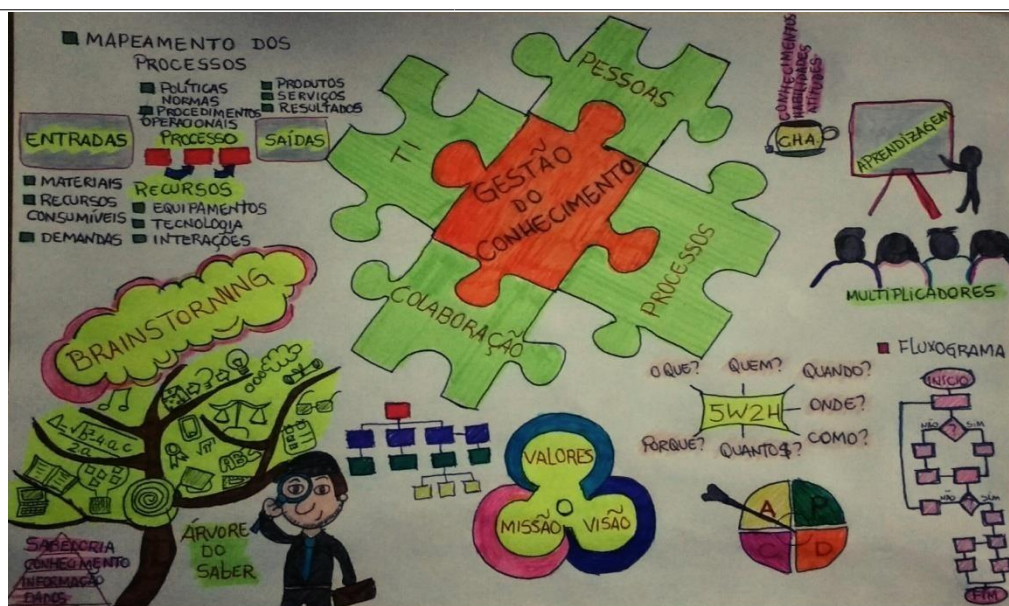 MAPEAMENTO DOS
PROCESSOS
POLÍTICAS
NORMAS
PROCEDIMENTOS
OPERACIONAIS
PRODUTOS
SERVIÇOS
RESULTADOS
ENTRADAS
PROCESSO
SAÍDAS
MATERIAIS
RECURSOS
CONSUMÍVEIS
DEMANDAS
RECURSOS
EQUIPAMENTOS
TECNOLOGIA
INTERAÇÕES
PESSOAS
TI
GESTÃO
DO
CONHECIMENTO
PROCESSOS
COLABORAÇÃO
CONHECIMENTOS
HABILIDADES
ATITUDES
CHA
APRENDIZAGEM
MULTIPLICADORES
BRAINSTORNING
Δ=√b²-4ac
2a
ABS
ÁRVORE
DO
SABER
SABEDORIA
CONHECIMENTO
INFORMAÇÃO
DADOS
VALORES
MISSÃO
VISÃO
O QUE?
QUEM?
QUANDO?
5W2H
ONDE?
PORQUE?
QUANTO$?
COMO?
A
P
C
D
FLUXOGRAMA
INÍCIO
NÃO
?
SIM
NÃO
?
SIM
FIM